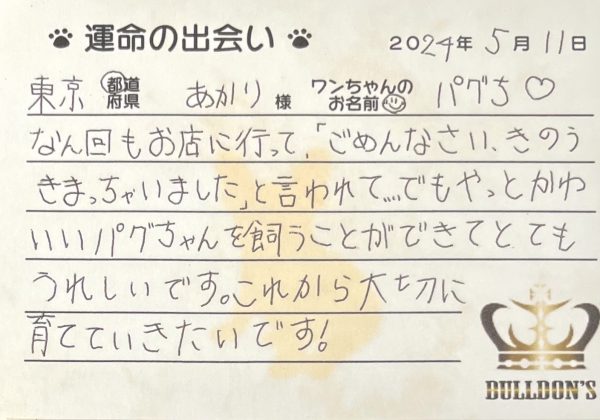 運命の出会い 2024年 5月 11日
東京 都道府県 あかり 様 ワンちゃんのお名前 パグち♡
なん回もお店に行って、「ごめんなさい、きのう
きまっちゃいました」と言われて....でもやっとかわ
いいパグちゃんを飼うことができてとても
うれしいです。これから大切に
育てていきたいです!
BULLDON'S